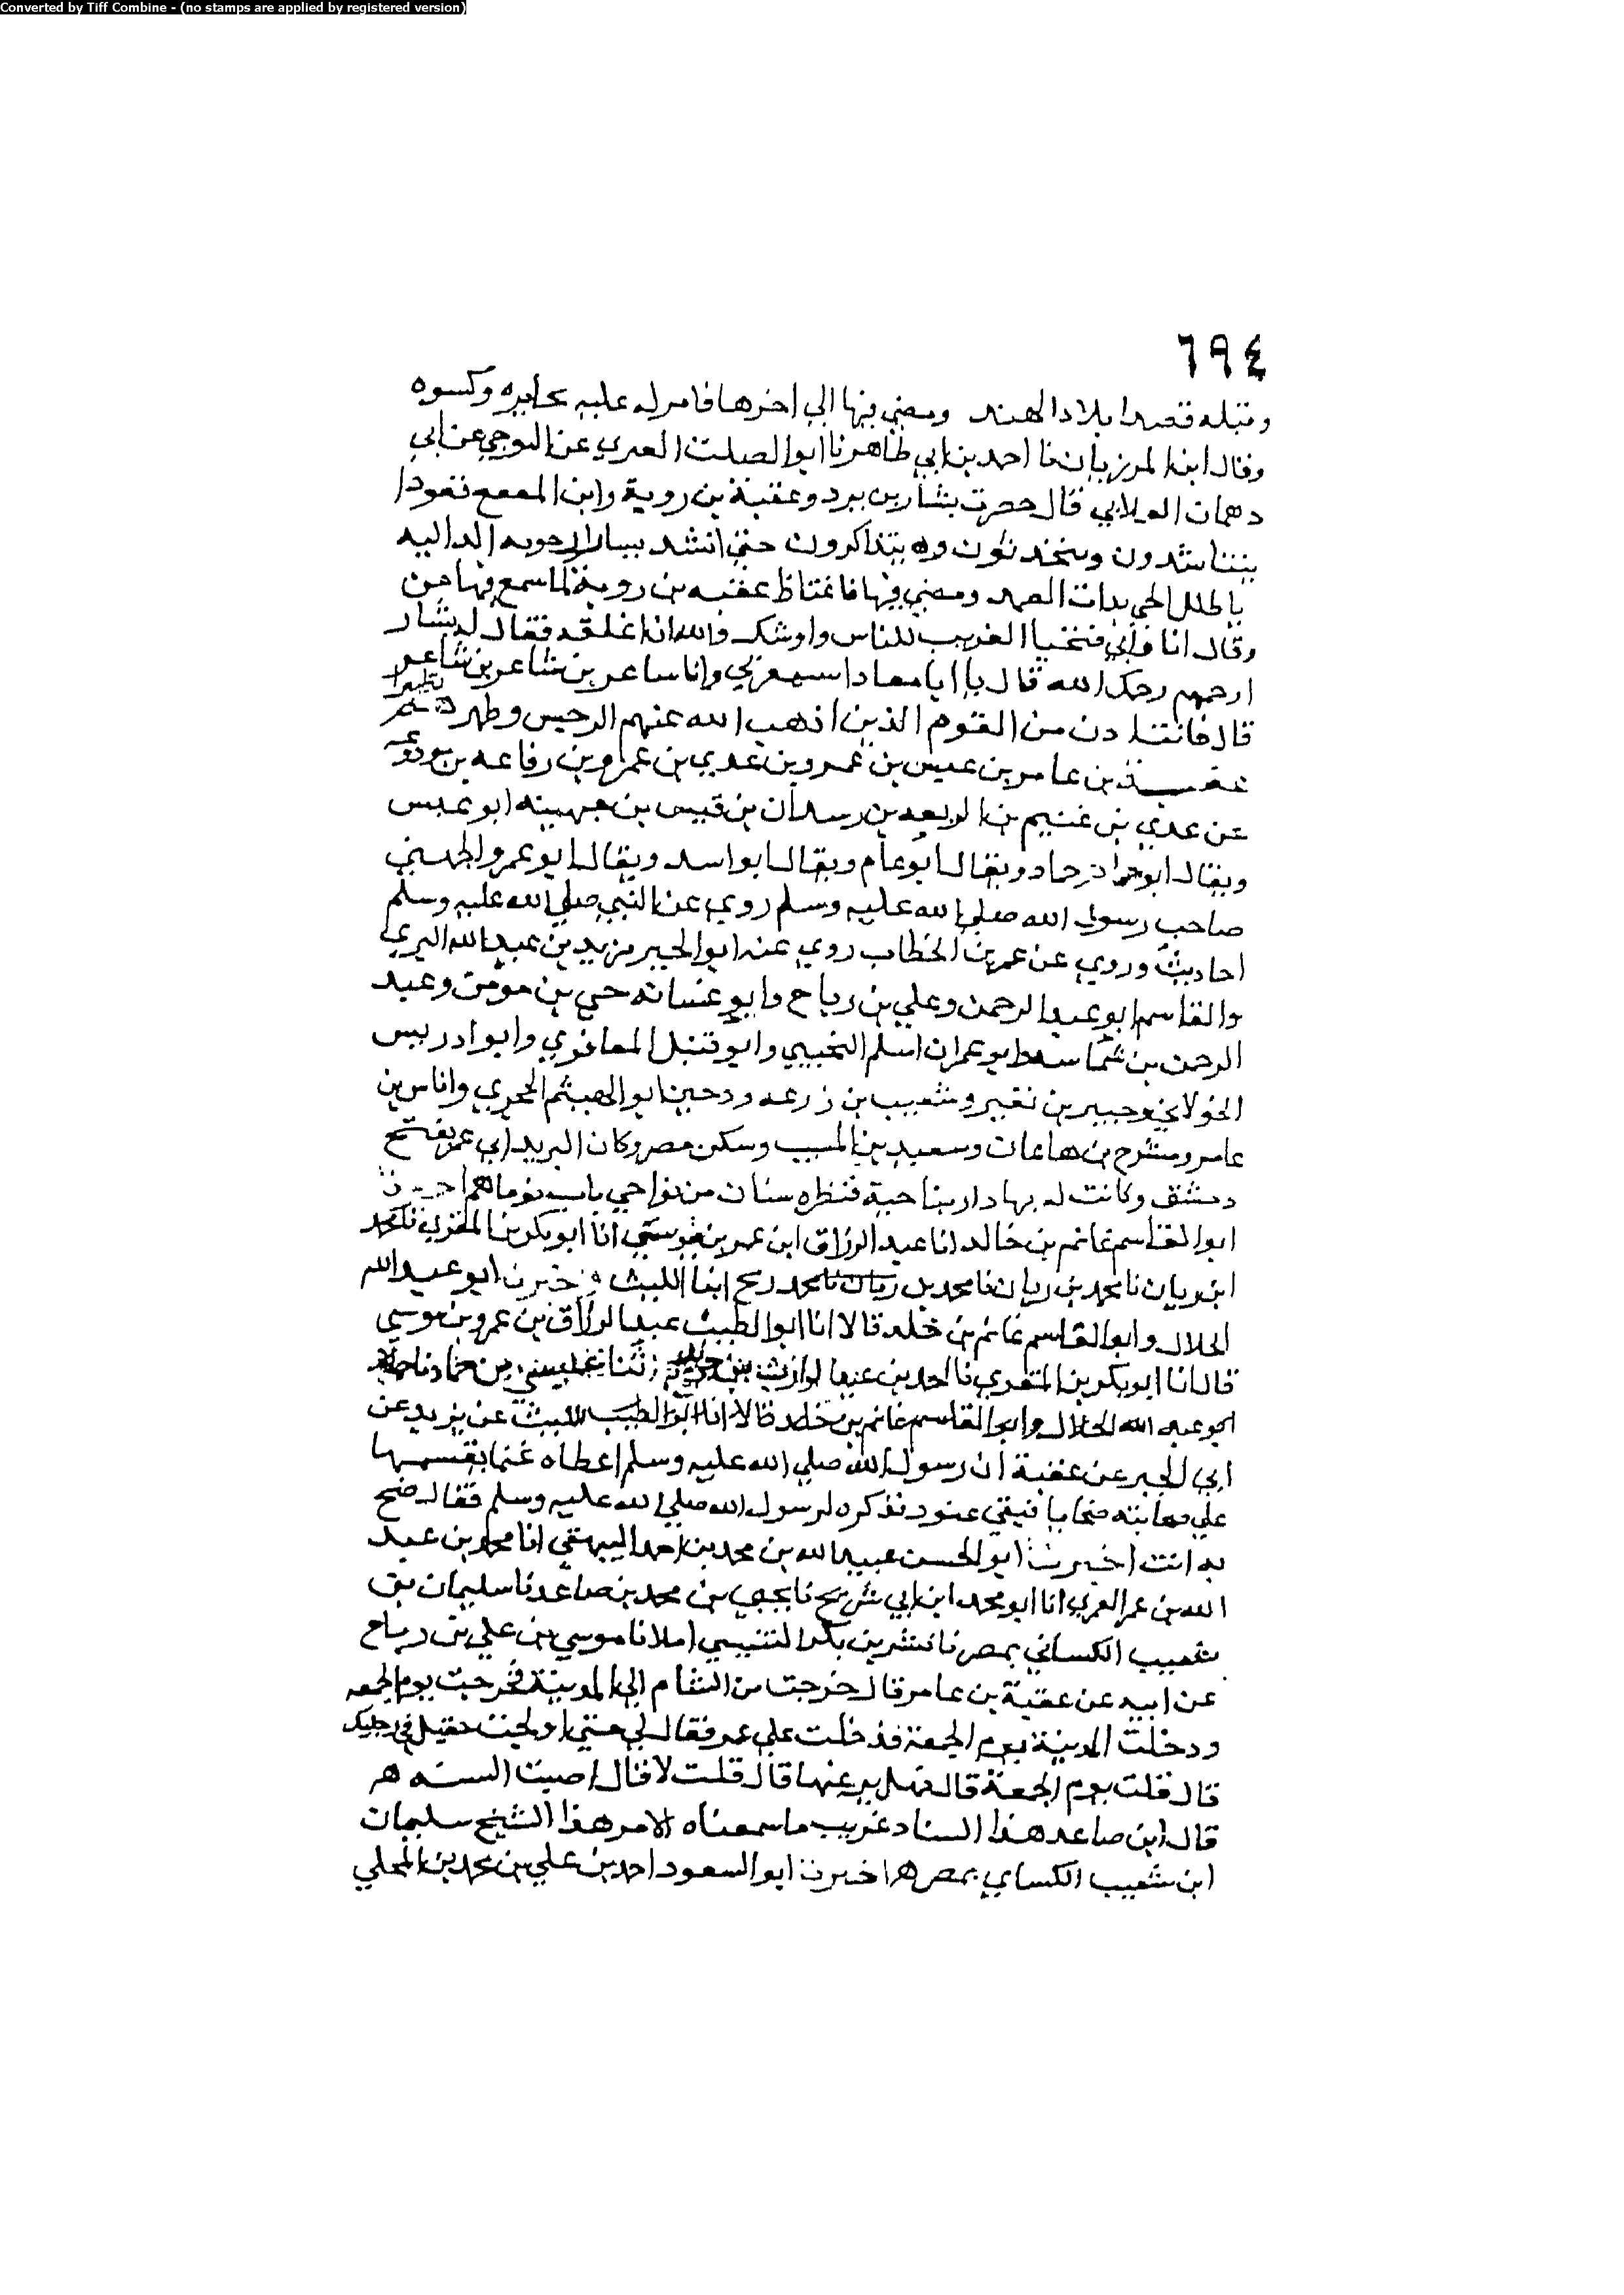 Converted by Tiff Combine - (no stamps are applied by registered version)
٦٩٤
وقبله قصدا بلاد الهند ومضي فيها الي اخرها فامر له عليه بجايزه وكسوه
وقال ابن المرزبان نا احمد بن ابي طاهر نا ابو الصلت العبري عن النوجي عن ابي
دهمان الغلابي قال حضرت بشار بن برد وعقبة بن روبة وابن المقفع قعودا
يتناشدون ويتحدثون ويتذاكرون حتي انشد بشار ارجوزته الداليه
يا طلل الحي بذات الصمد ومضي فيها فاغتاظ عقبه بن روبة لما سمع فيها من
وقال انا وابي فتحنا الغريب للناس واوشك والله ان اغلقه فقال له بشار
ارحمهم رحمك الله قال يا ابا معاذ اتستصغرني وانا شاعر بن شاعر بن شاعر
قال فانت اذن من القوم الذين اذهب الله عنهم الرجس وطهرهم تطهيرا
عقبة بن عامر بن عبس بن عمرو بن عدي بن عمرو بن رفاعه بن مودوعه
عن عدي بن غنيم بن الربعه بن رسدان بن قيس بن جهينه ابو عبس
ويقال ابو حماد ويقال ابو عامر ويقال ابو اسد ويقال ابو عمرو الجهني
صاحب رسول الله صلي الله عليه وسلم روي عن النبي صلي الله عليه وسلم
احاديث وروي عن عمر بن الخطاب روي عنه ابو الخير مزيد بن عبد الله اليزني
والقاسم ابو عبد الرحمن وعلي بن رباح وابو عشانه حي بن مومن وعبد
الرحمن بن شماسه ابو عمران اسلم التجيبي وابو قبيل المعافري وابو ادريس
الخولاني وجبير بن نفير وشعيب بن زرعه ودحين ابو الهيثم الحجري واناس بن
عامر ومشرح بن هاعان وسعيد بن المسيب وسكن مصر وكان البريد الي عمر بفتح
دمشق وكانت له بها دار بناحية قنطره سنان من نواحي باب توما
ابو القاسم غانم بن خالد انا عبد الرزاق ابن عمر بن موسي انا ابو بكر بن المقري نا محمد
ابن ريان نا محمد بن ريان نا محمد بن رمح ابنا الليث واخبرنا ابو عبد الله
الخلال وابو القاسم غانم بن خلد قالا انا ابو الطيب عبد الرزاق بن عمرو بن موسي
قال انا ابو بكر بن المقري نا احمد بن عبد الوارث بن جرير ثنا عيسي بن حماد
ابو عبد الله الخلال وابو القاسم غانم بن خلد قالا انا ابو الطيب الليث عن يزيد عن
ابي الخير عن عقبة ان رسول الله صلي الله عليه وسلم اعطاه غنما يقسمها
علي صحابته ضحايا فبقي عتود فذكره لرسول الله صلي الله عليه وسلم فقال ضح
به انت اخبرنا ابو الحسن عبيد الله بن محمد بن احمد البيهقي انا محمد بن عبد
الله بن عمر العمري انا ابو محمد ابن ابي شريح نا يحيي بن محمد بن صاعد نا سليمان بن
شعيب الكساني بمصر نا بشر بن بكر التنيسي املا نا موسي بن علي بن رباح
عن ابيه عن عقبة بن عامر قال خرجت من الشام الي المدينة فخرجت يوم الجمعه
ودخلت المدينة يوم الجمعة فدخلت علي عمر فقال لي متي اولجت خفيك في رجليك
قال قلت يوم الجمعة قال فهل نزعتها قال قلت لا قال اصبت السنه هر
قال ابن صاعد هذا اسناد غريب ما سمعناه الا من هذا الشيخ سليمان
ابن شعيب الكساي بمصر هر اخبرنا ابو السعود احمد بن علي بن محمد بن المجلي